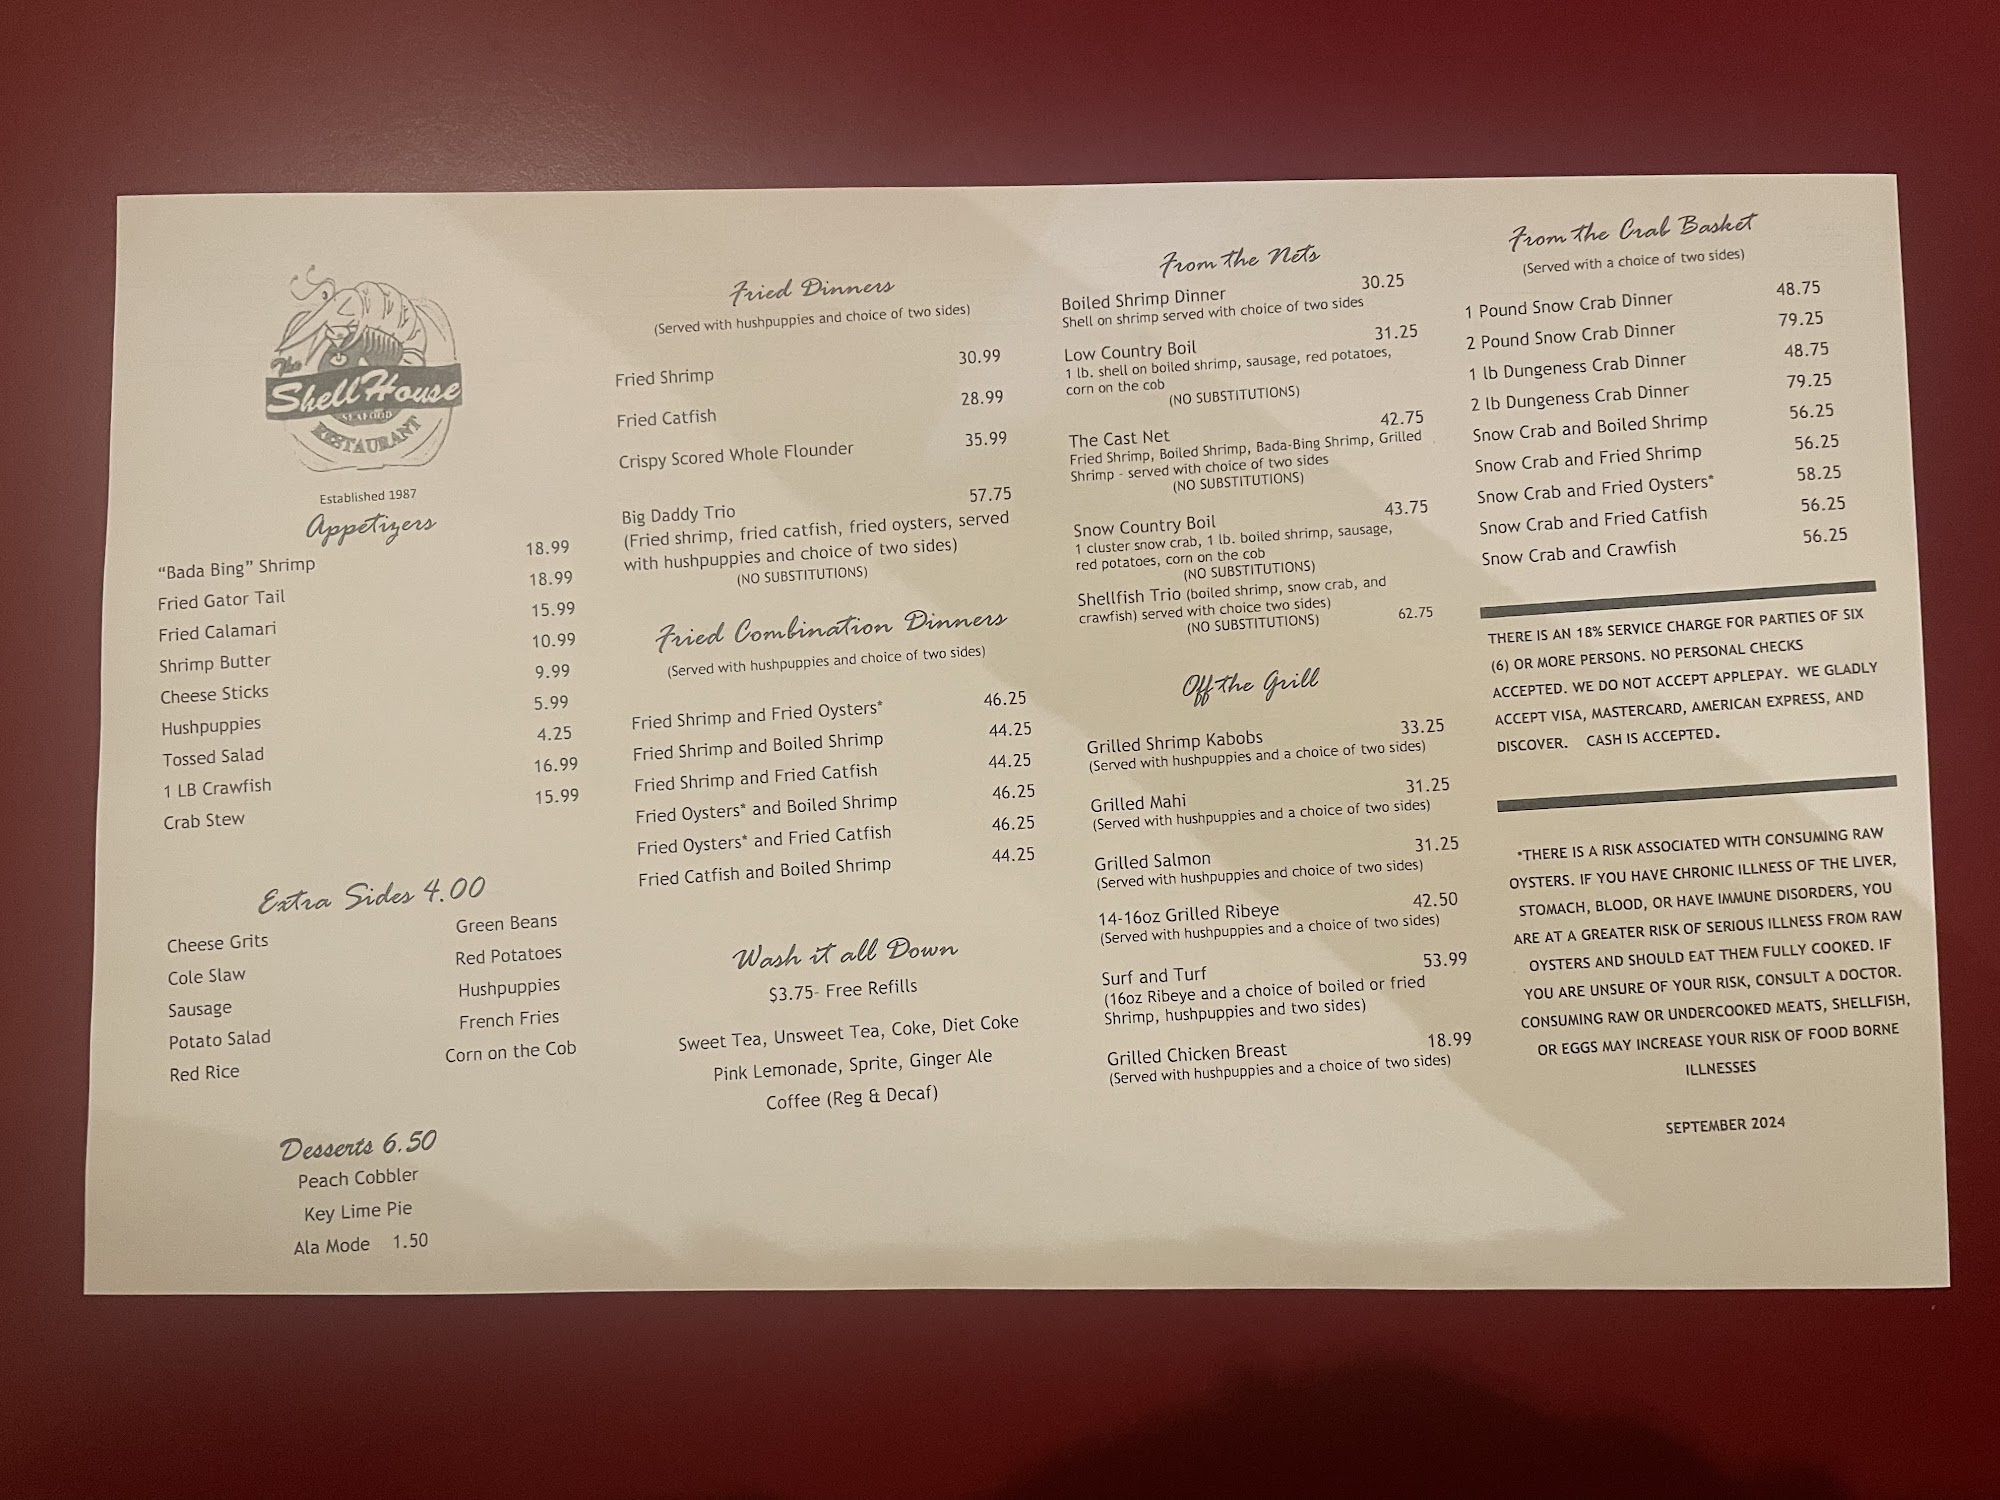 The
ShellHouse
SEAFOOD
RESTAURANT
Established 1987
Appetizers
“Bada Bing” Shrimp 18.99
Fried Gator Tail 18.99
Fried Calamari 15.99
Shrimp Butter 10.99
Cheese Sticks 9.99
Hushpuppies 5.99
Tossed Salad 4.25
1 LB Crawfish 16.99
Crab Stew 15.99
Extra Sides 4.00
Cheese Grits
Cole Slaw
Sausage
Potato Salad
Red Rice
Green Beans
Red Potatoes
Hushpuppies
French Fries
Corn on the Cob
Desserts 6.50
Peach Cobbler
Key Lime Pie
Ala Mode 1.50
Fried Dinners
(Served with hushpuppies and choice of two sides)
Fried Shrimp 30.99
Fried Catfish 28.99
Crispy Scored Whole Flounder 35.99
Big Daddy Trio 57.75
(Fried shrimp, fried catfish, fried oysters, served
with hushpuppies and choice of two sides)
(NO SUBSTITUTIONS)
Fried Combination Dinners
(Served with hushpuppies and choice of two sides)
Fried Shrimp and Fried Oysters* 46.25
Fried Shrimp and Boiled Shrimp 44.25
Fried Shrimp and Fried Catfish 44.25
Fried Oysters* and Boiled Shrimp 46.25
Fried Oysters* and Fried Catfish 46.25
Fried Catfish and Boiled Shrimp 44.25
Wash it all Down
$3.75- Free Refills
Sweet Tea, Unsweet Tea, Coke, Diet Coke
Pink Lemonade, Sprite, Ginger Ale
Coffee (Reg & Decaf)
From the Nets
Boiled Shrimp Dinner 30.25
Shell on shrimp served with choice of two sides
Low Country Boil 31.25
1 lb. shell on boiled shrimp, sausage, red potatoes,
corn on the cob
(NO SUBSTITUTIONS)
The Cast Net 42.75
Fried Shrimp, Boiled Shrimp, Bada-Bing Shrimp, Grilled
Shrimp - served with choice of two sides
(NO SUBSTITUTIONS)
Snow Country Boil 43.75
1 cluster snow crab, 1 lb. boiled shrimp, sausage,
red potatoes, corn on the cob
(NO SUBSTITUTIONS)
Shellfish Trio (boiled shrimp, snow crab, and
crawfish) served with choice two sides)
(NO SUBSTITUTIONS) 62.75
Off the Grill
Grilled Shrimp Kabobs 33.25
(Served with hushpuppies and a choice of two sides)
Grilled Mahi 31.25
(Served with hushpuppies and a choice of two sides)
Grilled Salmon 31.25
(Served with hushpuppies and a choice of two sides)
14-16oz Grilled Ribeye 42.50
(Served with hushpuppies and a choice of two sides)
Surf and Turf 53.99
(16oz Ribeye and a choice of boiled or fried
Shrimp, hushpuppies and two sides)
Grilled Chicken Breast 18.99
(Served with hushpuppies and a choice of two sides)
From the Crab Basket
(Served with a choice of two sides)
1 Pound Snow Crab Dinner 48.75
2 Pound Snow Crab Dinner 79.25
1 lb Dungeness Crab Dinner 48.75
2 lb Dungeness Crab Dinner 79.25
Snow Crab and Boiled Shrimp 56.25
Snow Crab and Fried Shrimp 56.25
Snow Crab and Fried Oysters* 58.25
Snow Crab and Fried Catfish 56.25
Snow Crab and Crawfish 56.25
THERE IS AN 18% SERVICE CHARGE FOR PARTIES OF SIX
(6) OR MORE PERSONS. NO PERSONAL CHECKS
ACCEPTED. WE DO NOT ACCEPT APPLEPAY. WE GLADLY
ACCEPT VISA, MASTERCARD, AMERICAN EXPRESS, AND
DISCOVER. CASH IS ACCEPTED.
*THERE IS A RISK ASSOCIATED WITH CONSUMING RAW
OYSTERS. IF YOU HAVE CHRONIC ILLNESS OF THE LIVER,
STOMACH, BLOOD, OR HAVE IMMUNE DISORDERS, YOU
ARE AT A GREATER RISK OF SERIOUS ILLNESS FROM RAW
OYSTERS AND SHOULD EAT THEM FULLY COOKED. IF
YOU ARE UNSURE OF YOUR RISK, CONSULT A DOCTOR.
CONSUMING RAW OR UNDERCOOKED MEATS, SHELLFISH,
OR EGGS MAY INCREASE YOUR RISK OF FOOD BORNE
ILLNESSES
SEPTEMBER 2024